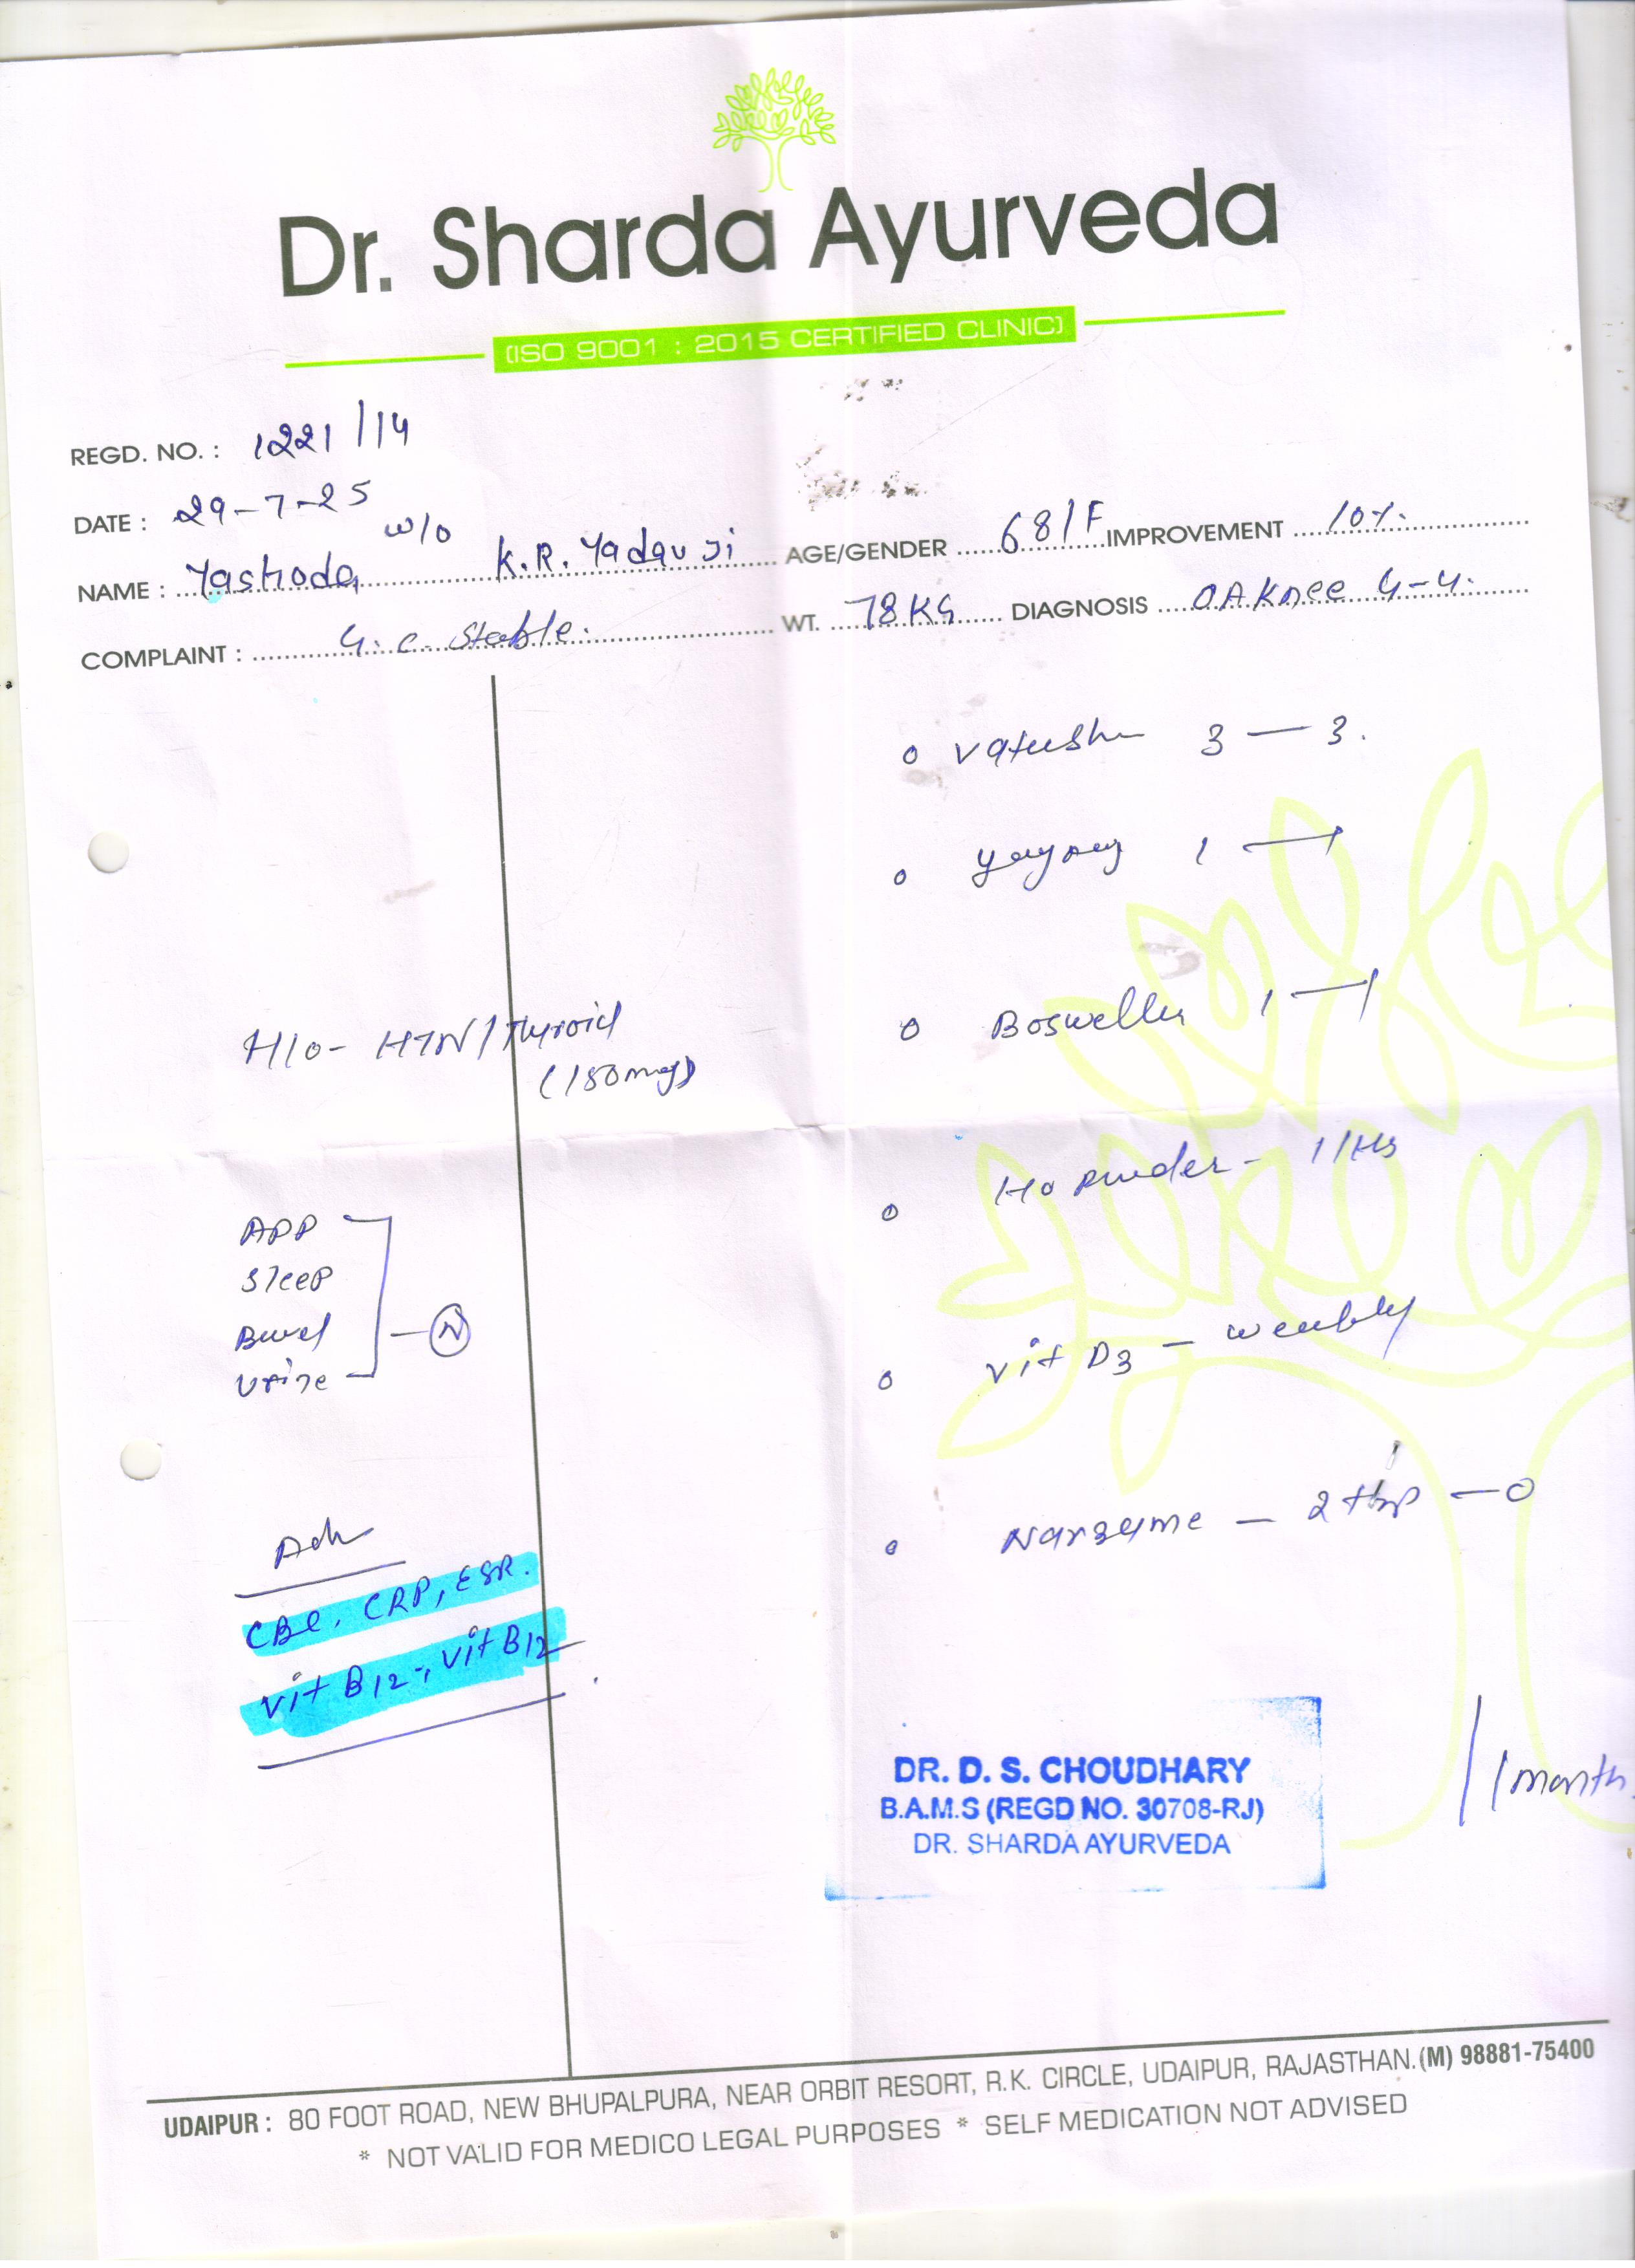 Dr. Sharda Ayurveda
(ISO 9001 : 2015 CERTIFIED CLINIC)
REGD. NO. : 1221/14
DATE : 29-7-25
NAME : Yashoda w/o K.R. Yadav Ji AGE/GENDER 68/F IMPROVEMENT 10%.
COMPLAINT : G.C. Stable. WT. 78KG DIAGNOSIS OA Knee G-4.
3 — 3.
1 — 1
H/o - HTN/Thyroid
Boswellia 1 — 1
Ho powder - 1/HS
APP
Sleep
Bowel — N
Urine
Vit D3 — weekly
— 0
Adv
CBC, CRP, ESR.
Vit B12, Vit B12
DR. D. S. CHOUDHARY
B.A.M.S (REGD NO. 30708-RJ)
DR. SHARDA AYURVEDA
1 month.
UDAIPUR : 80 FOOT ROAD, NEW BHUPALPURA, NEAR ORBIT RESORT, R.K. CIRCLE, UDAIPUR, RAJASTHAN. (M) 98881-75400
* NOT VALID FOR MEDICO LEGAL PURPOSES * SELF MEDICATION NOT ADVISED